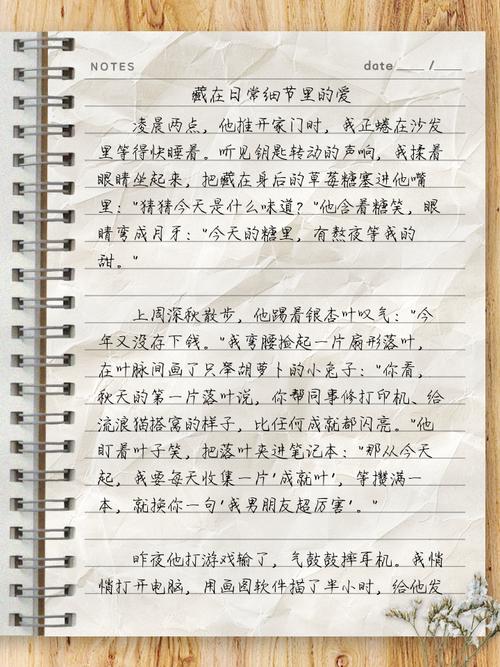 NOTES
date____/____
藏在日常细节里的爱
凌晨两点，他推开家门时，我正蜷在沙发
里等得快睡着。听见钥匙转动的声响，我揉着
眼睛坐起来，把藏在身后的草莓糖塞进他嘴
里："猜猜今天是什么味道？"他含着糖笑，眼
睛弯成月牙："今天的糖里，有熬夜等我的
甜。"
上周深秋散步，他踢着银杏叶叹气："今
年又没存下钱。"我弯腰捡起一片扇形落叶，
在叶脉间画了只举胡萝卜的小兔子："你看，
秋天的第一片落叶说，你帮同事修打印机、给
流浪猫搭窝的样子，比任何成就都闪亮。"他
盯着叶子笑，把落叶夹进笔记本："那从今天
起，我要每天收集一片'成就叶'，等攒满一
本，就换你一句'我男朋友超厉害'。"
昨夜他打游戏输了，气鼓鼓摔耳机。我悄
悄打开电脑，用画图软件描了半小时，给他发